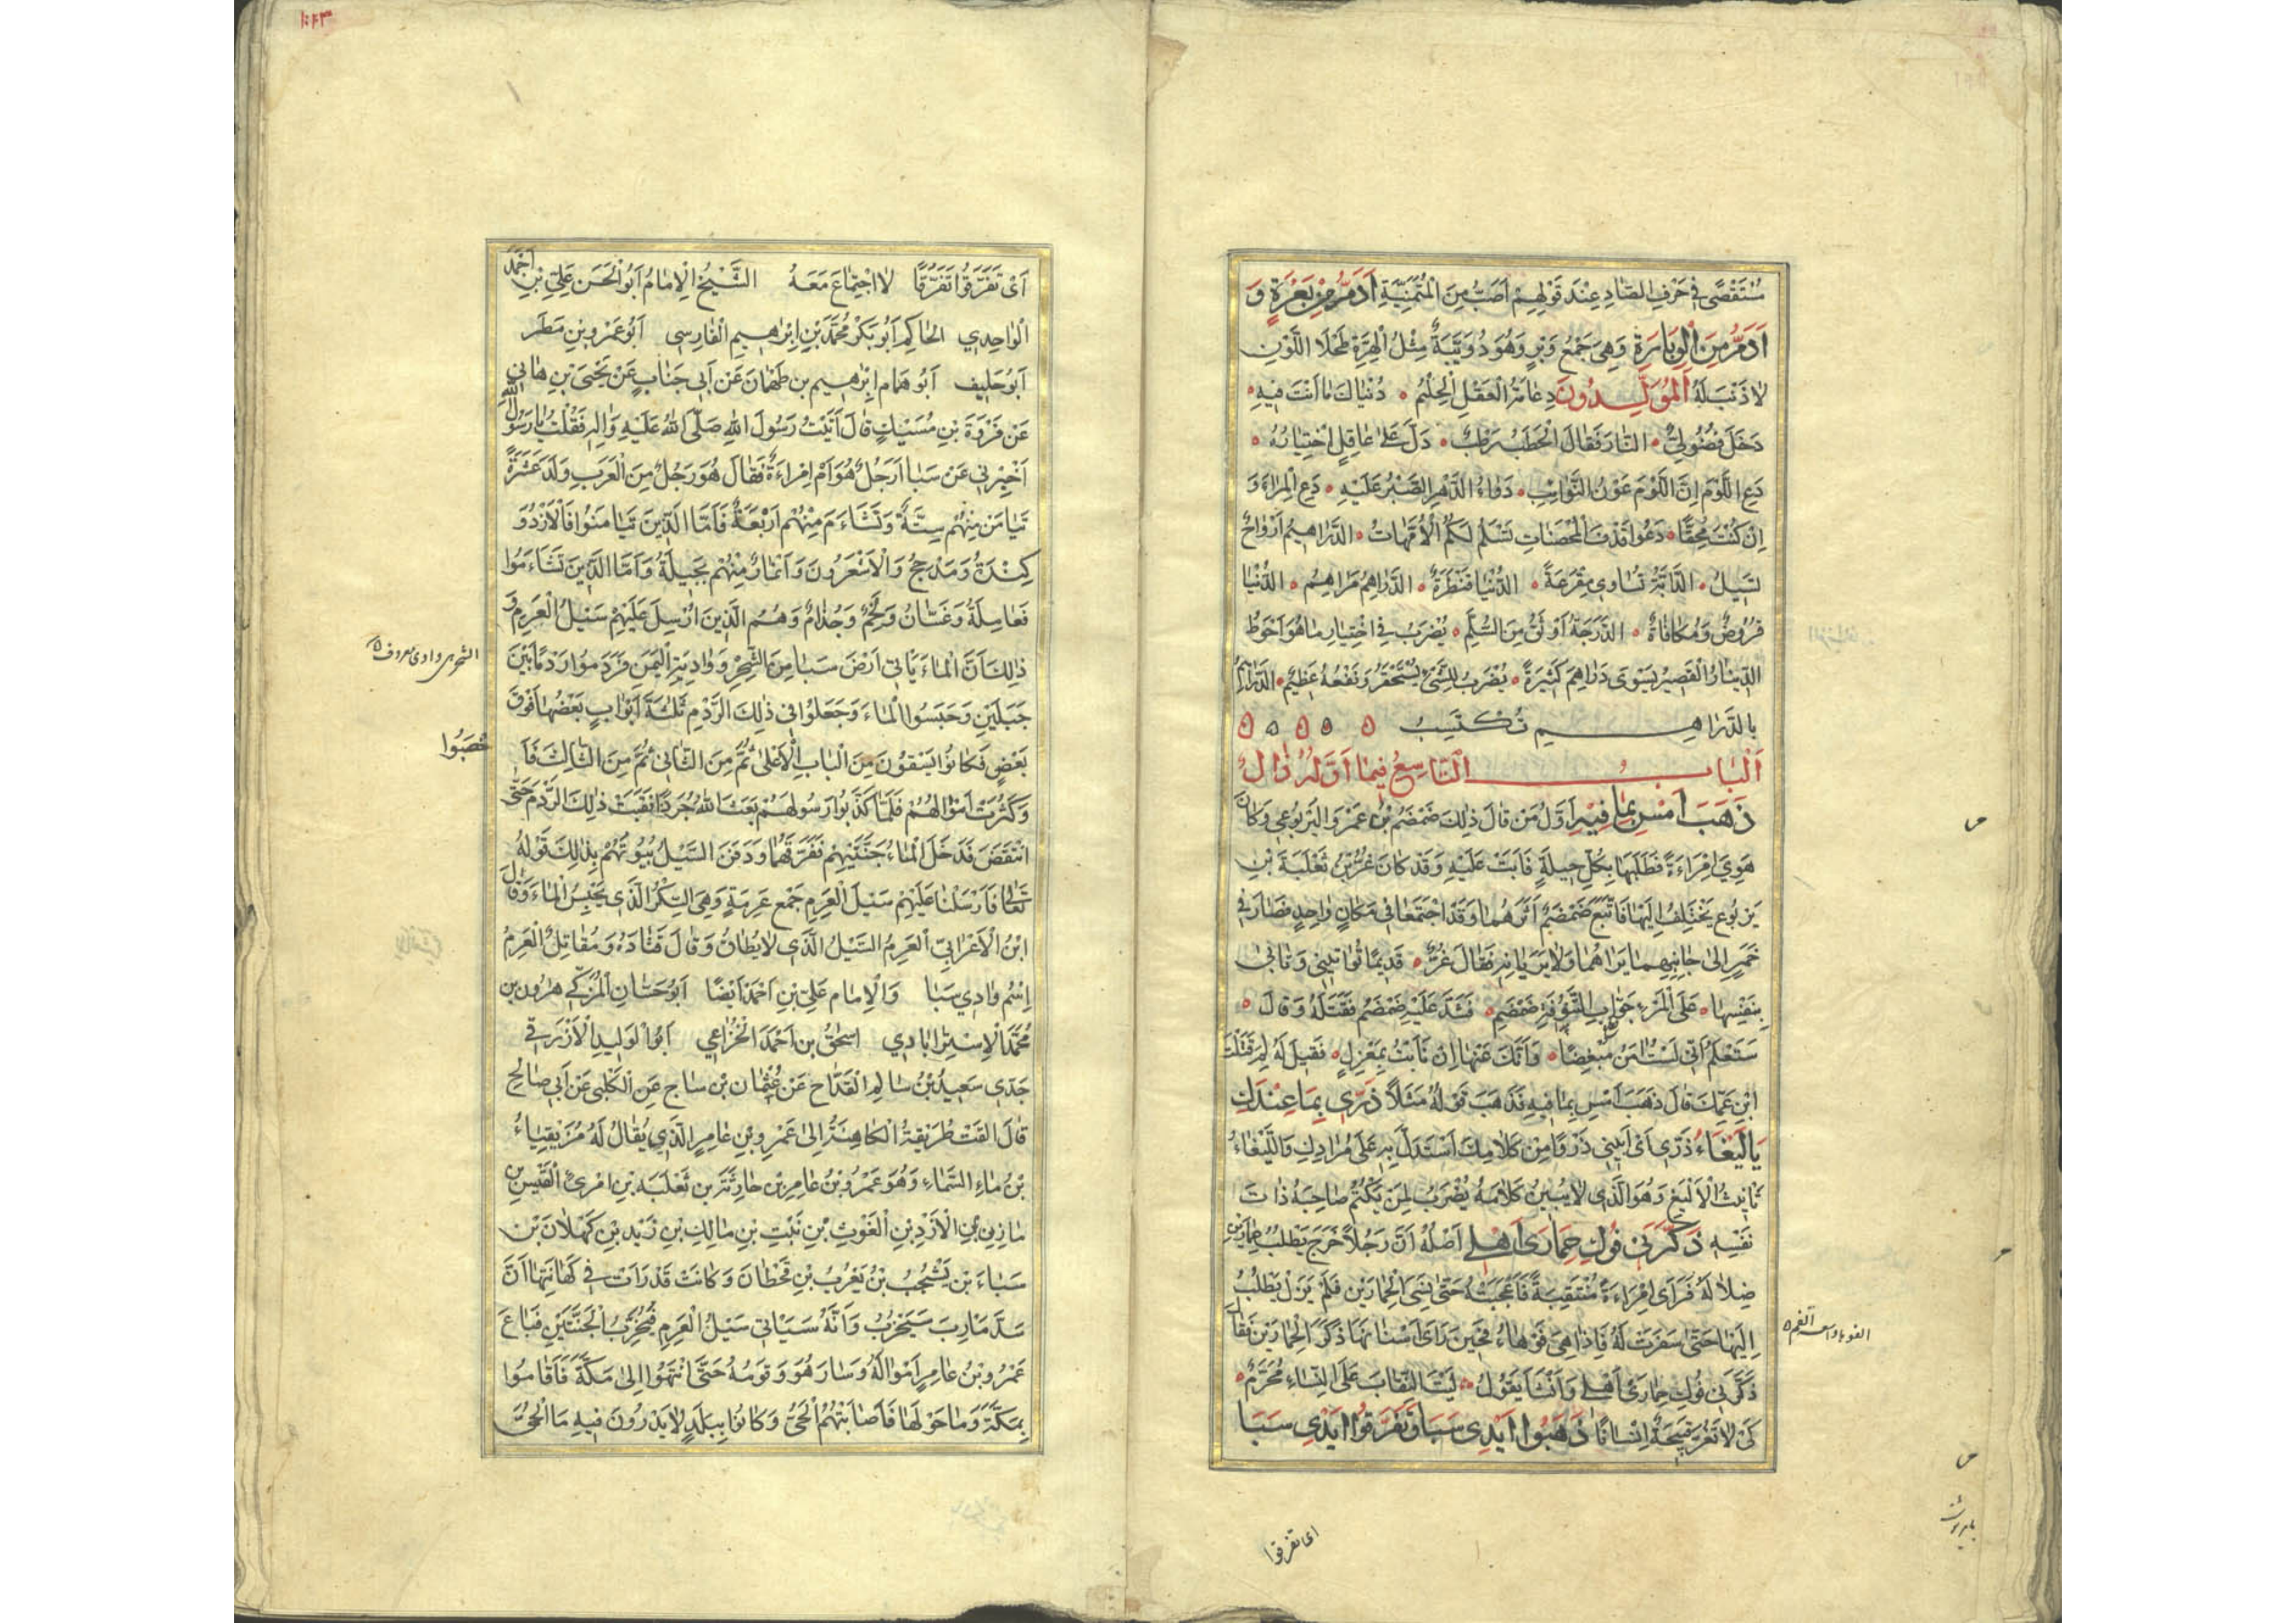 مُسْتَقْصًى فِي حَرْفِ الصَّادِ عِنْدَ قَوْلِهِمْ أَصَبُّ مِنَ الْمُتَمَنِّيَةِ أَدَمُّ مِنْ بَعْرَةٍ وَ
أَدَمُّ مِنَ الْوِبَارَةِ وَهِيَ جَمْعُ وَبْرٍ وَهُوَ دُوَيْبَّةٌ مِثْلُ الْهِرَّةِ طَحْلَاءُ اللَّوْنِ
لَا ذَنَبَ لَهُ الْمُوَلَّدُونَ دِعَامَةُ الْعَقْلِ الْحِلْمُ • دُنْيَاكَ مَا أَنْتَ فِيهِ •
دَخَلَ فُضُولِيٌّ • النَّارَ فَقَالَ الْحَطَبُ رَطْبٌ • دَلَّ عَلَى عَاقِلٍ اخْتِيَارُهُ •
دَعِ اللَّوْمَ إِنَّ اللَّوْمَ عَوْنُ النَّوَائِبِ • دَوَاءُ الدَّهْرِ الصَّبْرُ عَلَيْهِ • دَعِ الْمِرَاءَ وَ
إِنْ كُنْتَ مُحِقًّا • دَعُوا قَذْفَ الْمُحْصَنَاتِ تَسْلَمْ لَكُمُ الْأُمَّهَاتُ • الدَّرَاهِيمُ أَرْوَاحٌ
تَسِيلُ • الدَّابَّةُ تُسَاوِي مِقْرَعَةً • الدُّنْيَا قَنْطَرَةٌ • الدَّرَاهِمُ مَرَاهِمُ • الدُّنْيَا
قُرُوضٌ وَمُكَافَاةٌ • الدَّرَجَةُ أَوْثَقُ مِنَ السُّلَّمِ • يُضْرَبُ فِي اخْتِيَارِ مَا هُوَ أَحْوَطُ
الدِّينَارُ الْقَصِيرُ يَسْوَى دَرَاهِمَ كَثِيرَةً • يُضْرَبُ لِلشَّيْءِ يُسْتَحْقَرُ وَنَفْعُهُ عَظِيمٌ • الدَّرَاهِمُ
بِالدَّرَاهِيمِ تُكْتَسَبُ ه ه ه ه ه
الْبَابُ التَّاسِعُ فِيمَا أَوَّلُهُ ذَالٌ
ذَهَبَ أَمْسِ بِمَا فِيهِ أَوَّلُ مَنْ قَالَ ذٰلِكَ ضَمْضَمُ بْنُ عَمْرٍو الْيَرْبُوعِي وَكَانَ
هَوِيَ امْرَاءَةً فَطَلَبَهَا بِكُلِّ حِيلَةٍ فَأَبَتْ عَلَيْهِ وَقَدْ كَانَ غُرُّ بْنُ ثَعْلَبَةَ بْنِ
يَرْبُوعٍ يَخْتَلِفُ إِلَيْهَا فَاتَّبَعَ ضَمْضَمٌ أَثَرَهُمَا وَقَدِ اجْتَمَعَا فِي مَكَانٍ وَاحِدٍ فَصَارَ فِي
خَمَرٍ إِلَى جَانِبِهِمَا يَرَاهُمَا وَلَا يَرَيَانِهِ فَقَالَ غُرٌّ • قَدِيمًا تُوَاتِينِي وَتَأْبَى
بِنَفْسِهَا • عَلَى الْمَرْءِ جَوَّابِ التَّنُوفَةِ ضَمْضَمِ • فَشَدَّ عَلَيْهِ ضَمْضَمٌ فَقَتَلَهُ وَقَالَ •
سَتَعْلَمُ أَنِّي لَسْتُ آمَنُ مُبْغِضًا • وَأَنَّكَ عَنْهَا إِنْ نَأَيْتَ بِمَعْزِلِ • فَقِيلَ لَهُ لِمَ قَتَلْتَ
ابْنَ عَمِّكَ قَالَ ذَهَبَ أَمْسِ بِمَا فِيهِ فَذَهَبَ قَوْلُهُ مَثَلًا ذَرِّي بِمَا عِنْدَكِ
يَا لَيْغَاءُ ذَرِّي أَيْ أَبِينِي ذَرْوًا مِنْ كَلَامِكِ أَسْتَدِلُّ بِهِ عَلَى مُرَادِكِ وَاللَّيْغَاءُ
تَأْنِيثُ الْأَلْيَغِ وَهُوَ الَّذِي لَا يُبِينُ كَلَامَهُ يُضْرَبُ لِمَنْ يَكْتُمُ صَاحِبَهُ ذَاتَ
نَفْسِهِ ذَكَّرَنِي فُوكِ حِمَارَيْ أَهْلِي أَصْلُهُ أَنَّ رَجُلًا خَرَجَ يَطْلُبُ حِمَارَيْنِ
ضَلَّا لَهُ فَرَأَى امْرَاءَةً مُنْتَقِبَةً فَأَعْجَبَتْهُ حَتَّى نَسِيَ الْحِمَارَيْنِ فَلَمْ يَزَلْ يَطْلُبُ
إِلَيْهَا حَتَّى سَفَرَتْ لَهُ فَإِذَا هِيَ فَوْهَاءُ فَحِينَ رَأَى أَسْنَانَهَا ذَكَرَ الْحِمَارَيْنِ فَقَالَ
ذَكَّرَنِي فُوكِ حِمَارَيْ أَهْلِي وَأَنْشَأَ يَقُولُ • لَيْتَ النِّقَابَ عَلَى النِّسَاءِ مُحَرَّمٌ •
كَيْ لَا تَغُرَّ قَبِيحَةٌ إِنْسَانًا ذَهَبُوا أَيْدِي سَبَا وَتَفَرَّقُوا أَيْدِي سَبَا
الفوهاء واسعة الفم ه
اى تفرقوا
أَيْ تَفَرَّقُوا تَفَرُّقًا لَا اجْتِمَاعَ مَعَهُ الشَّيْخُ الْإِمَامُ أَبُو الْحَسَنِ عَلِيِّ بْنِ أَحْمَدَ
الْوَاحِدِي الْحَاكِمِ أَبُو بَكْرٍ مُحَمَّدِ بْنِ إِبْرٰهِيمَ الْفَارِسِي أَبُو عَمْرِو بْنِ مَطَرٍ
أَبُو خَلِيفَ أَبُو هَمَّامٍ إِبْرٰهِيمَ بن طَهْمَانَ عَنْ أَبِي جَنَابٍ عَنْ يَحْيَى بْنِ هَانِي
عَنْ فَرْوَةَ بْنِ مُسَيْكٍ قَالَ أَتَيْتُ رَسُولَ اللّٰهِ صَلَّى اللّٰهُ عَلَيْهِ وَآلِهِ فَقُلْتُ يَا رَسُولَ اللّٰهِ
أَخْبِرْنِي عَنْ سَبَا أَرَجُلٌ هُوَ أَمِ امْرَاءَةٌ فَقَالَ هُوَ رَجُلٌ مِنَ الْعَرَبِ وَلَدَ عَشَرَةً
تَيَامَنَ مِنْهُمْ سِتَّةٌ وَتَشَاءَمَ مِنْهُمْ أَرْبَعَةٌ فَأَمَّا الَّذِينَ تَيَامَنُوا فَالْأَزْدُ وَ
كِنْدَةُ وَمَذْحِجُ وَالْأَشْعَرُونَ وَأَنْمَارٌ مِنْهُمْ بَجِيلَةُ وَأَمَّا الَّذِينَ تَشَاءَمُوا
فَعَامِلَةُ وَغَسَّانُ وَلَخْمٌ وَجُذَامٌ وَهُمُ الَّذِينَ أُرْسِلَ عَلَيْهِمْ سَيْلُ الْعَرِمِ وَ
ذٰلِكَ أَنَّ الْمَاءَ يَأْتِي أَرْضَ سَبَا مِنَ الشِّحْرِ وَأَوْدِيَةِ الْيَمَنِ فَرَدَمُوا رَدْمًا بَيْنَ
جَبَلَيْنِ وَحَبَسُوا الْمَاءَ وَجَعَلُوا فِي ذٰلِكَ الرَّدْمِ ثَلٰثَةَ أَبْوَابٍ بَعْضُهَا فَوْقَ
بَعْضٍ فَكَانُوا يَسْقُونَ مِنَ الْبَابِ الْأَعْلَى ثُمَّ مِنَ الثَّانِي ثُمَّ مِنَ الثَّالِثِ فَأَ
خْصَبُوا
وَكَثُرَتْ أَمْوَالُهُمْ فَلَمَّا كَذَّبُوا رَسُولَهُمْ بَعَثَ اللّٰهُ جُرَذًا نَقَبَتْ ذٰلِكَ الرَّدْمَ حَتَّى
انْتَقَضَ فَدَخَلَ الْمَاءُ جَنَّتَيْهِمْ فَغَرَّقَهُمَا وَدَفَنَ السَّيْلُ بُيُوتَهُمْ فَذٰلِكَ قَوْلُهُ
تَعَالَى فَأَرْسَلْنَا عَلَيْهِمْ سَيْلَ الْعَرِمِ جَمْعُ عَرِمَةٍ وَهِيَ السِّكْرُ الَّذِي يَحْبِسُ الْمَاءَ وَقَالَ
ابْنُ الْأَعْرَابِيِّ الْعَرِمُ السَّيْلُ الَّذِي لَا يُطَاقُ وَقَالَ قَتَادَةُ وَمُقَاتِلٌ الْعَرِمُ
اسْمُ وَادِي سَبَا وَالْإِمَامُ عَلِيِّ بْنِ أَحْمَدَ أَيْضًا أَبُو حَسَّانِ الْمُزَكِّي هٰرُونَ بن
مُحَمَّدٍ الْإِسْتِرَابَادِي إِسْحٰقُ بن أَحْمَدَ الْخُزَاعِي أَبُو الْوَلِيدِ الْأَزْرَقِي
جَدِّي سَعِيدُ بْنُ سَالِمِ الْقَدَّاحِ عَنْ عُثْمَانَ بْنِ سَاجٍ عَنِ الْكَلْبِي عَنْ أَبِي صَالِحٍ
قَالَ أَلْقَتْ طُرَيْفَةُ الْكَاهِنَةُ إِلَى عَمْرِو بْنِ عَامِرٍ الَّذِي يُقَالُ لَهُ مُزَيْقِيَاءُ
بْنُ مَاءِ السَّمَاءِ وَهُوَ عَمْرُو بْنُ عَامِرِ بْنِ حَارِثَةَ بْنِ ثَعْلَبَةَ بْنِ امْرِئِ الْقَيْسِ بن
مَازِنِ بْنِ الْأَزْدِ بْنِ الْغَوْثِ بْنِ نَبْتِ بْنِ مَالِكِ بْنِ زَيْدِ بْنِ كَهْلَانَ بْنِ
سَبَاءِ بْنِ يَشْجُبَ بْنِ يَعْرُبَ بْنِ قَحْطَانَ وَكَانَتْ قَدْ رَأَتْ فِي كَهَانَتِهَا أَنَّ
سَدَّ مَأْرِبَ سَيَخْرَبُ وَأَنَّهُ سَيَأْتِي سَيْلُ الْعَرِمِ فَيُخَرِّبُ الْجَنَّتَيْنِ فَبَاعَ
عَمْرُو بْنُ عَامِرٍ أَمْوَالَهُ وَسَارَ هُوَ وَقَوْمُهُ حَتَّى انْتَهَوْا إِلَى مَكَّةَ فَأَقَامُوا
بِمَكَّةَ وَمَا حَوْلَهَا فَأَصَابَتْهُمُ الْحُمَّى وَكَانُوا بِبَلَدٍ لَا يَدْرُونَ فِيهِ مَا الْحُمَّى